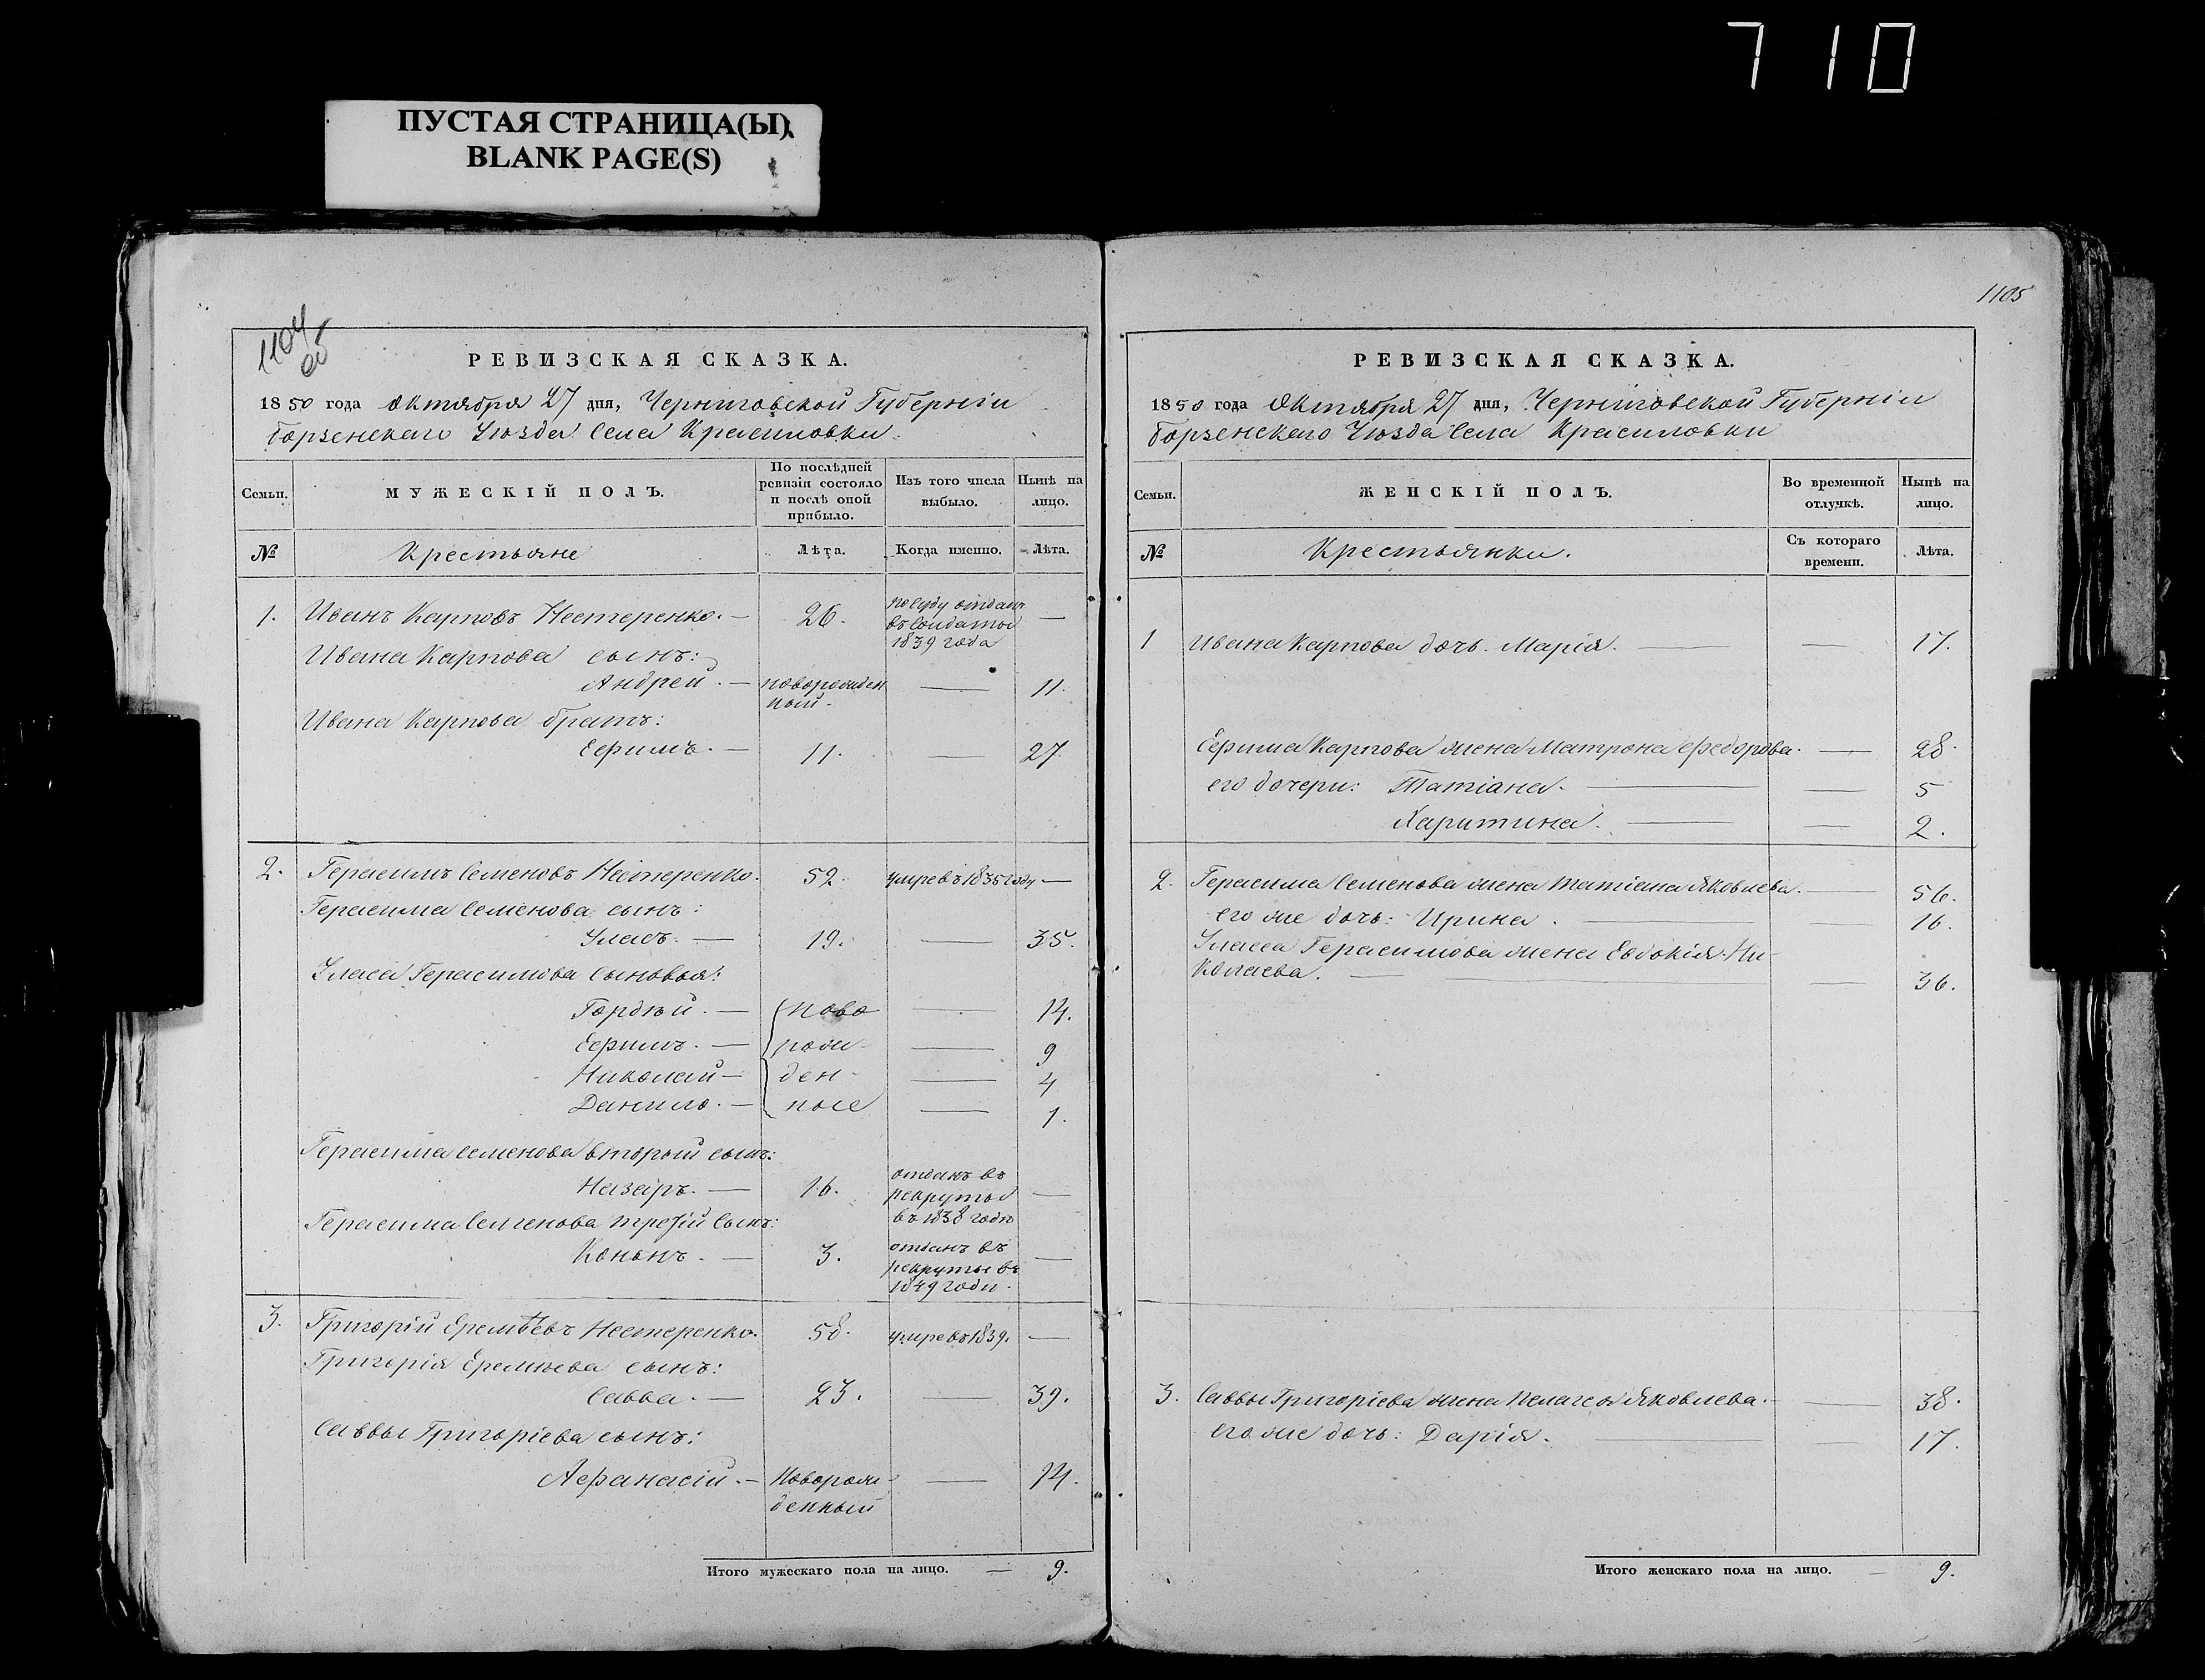 710
ПУСТАЯ СТРАНИЦА(Ы)
BLANK PAGE(S)
1104
об
РЕВИЗСКАЯ СКАЗКА.
1850 года Октября 27 дня, Черниговской Губерніи
Борзенскаго Уѣзда Села Красиловки.
Семьи.
МУЖЕСКІЙ ПОЛЪ.
По послѣдней ревизіи состояло и послѣ оной прибыло.
Изъ того числа выбыло.
Нынѣ на лицо.
№
Крестьяне
Лѣта.
Когда именно.
Лѣта.
1. Иванъ Карповъ Нестеренко. — 26. по суду отданъ въ Солдаты 1839 года —
Ивана Карпова сынъ:
Андрей. — новорожденный. — 11.
Ивана Карпова братъ:
Ефимъ. — 11. — 27.
2. Герасимъ Семеновъ Нестеренко. 52. умре въ 1835 году —
Герасима Семенова сынъ:
Уласъ. — 19. — 35.
Уласа Герасимова сыновья:
Гордѣй. — ново — 14.
Ефимъ. — рож- — 9
Николай — ден- — 4
Данило. — ные — 1.
Герасима Семенова вторый сынъ:
Назаръ. — 16. отданъ въ рекруты въ 1838 годѣ —
Герасима Семенова третій Сынъ:
Кононъ. — 3. отданъ въ рекруты въ 1849 годи. —
3. Григорій Еремѣевъ Нестеренко. 58. умре въ 1839. —
Григорія Еремѣева сынъ:
Савва. — 23. — 39.
Саввы Григоріева сынъ:
Афанасій. — Новорожденный — 14.
Итого мужескаго пола на лицо. — 9.
1105
РЕВИЗСКАЯ СКАЗКА.
1850 года Октября 27 дня, Черниговской Губерніи
Борзенскаго Уѣзда Села Красиловки
Семьи.
ЖЕНСКІЙ ПОЛЪ.
Во временной отлучкѣ.
Нынѣ на лицо.
№
Крестьянки.
Съ котораго времени.
Лѣта.
1 Ивана Карпова дочь. Марія. — — 17.
Ефима Карпова жена Матрона Федорова. — 28.
его дочери: Татіана. — — 5
Харитина. — — 2.
2. Герасима Семенова жена Татіана Яковлева. — 56.
его же дочь: Ирина. — — 16.
Уласа Герасимова жена Евдокія Ни-
колаева. — — 36.
3. Саввы Григоріева жена Пелагея Яковлева. — 38.
его же дочь: Дарія. — — 17.
Итого женскаго пола на лицо. — 9.